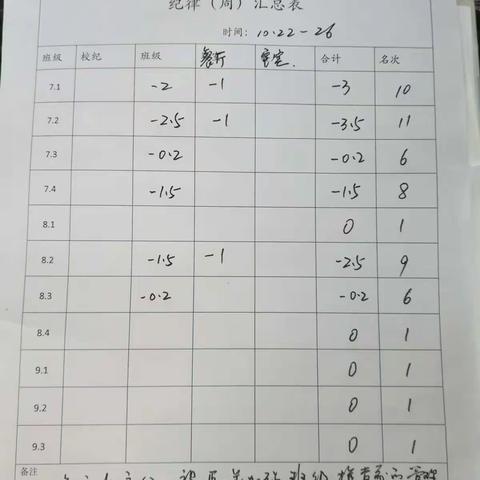 纪律（周）汇总表
时间：10.22-26
班级 校纪 班级 餐厅 寝室. 合计 名次
7.1 -2 -1 -3 10
7.2 -2.5 -1 -3.5 11
7.3 -0.2 -0.2 6
7.4 -1.5 -1.5 8
8.1 0 1
8.2 -1.5 -1 -2.5 9
8.3 -0.2 -0.2 6
8.4 0 1
9.1 0 1
9.2 0 1
9.3 0 1
备注